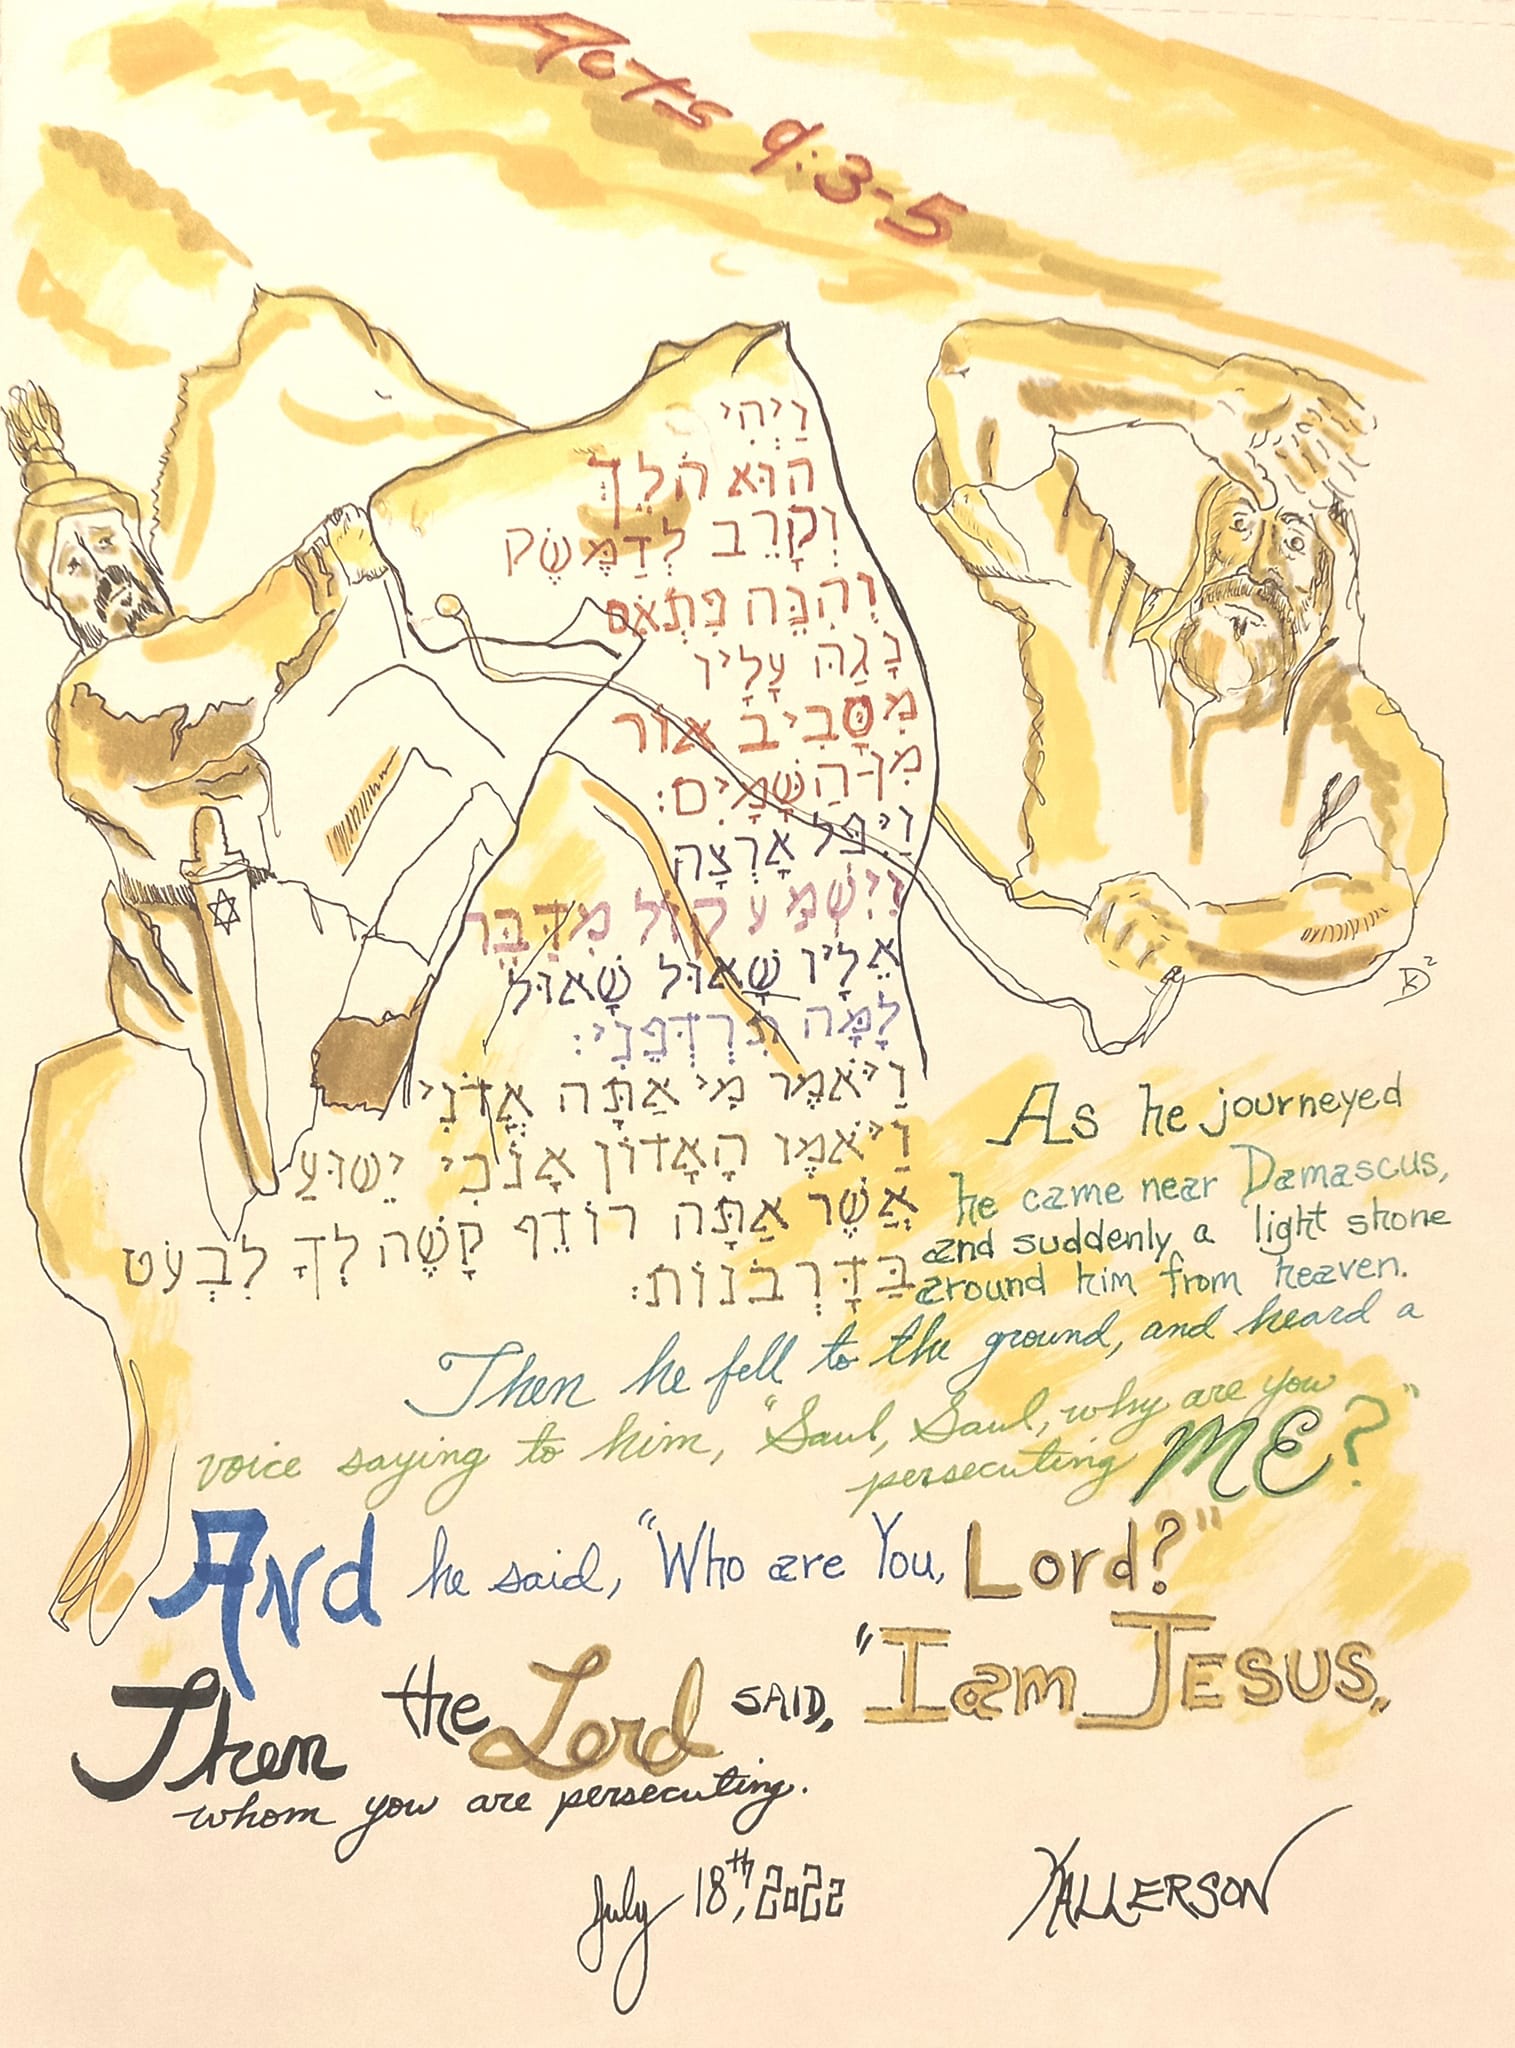 Acts 9:3-5
וַיְהִי
הוּא הֹלֵךְ
וְקָרֵב לְדַמֶּשֶׂק
וְהִנֵּה פִתְאֹם
נָגַהּ עָלָיו
מִסָּבִיב אוֹר
מִן־הַשָּׁמָיִם׃
וַיִּפֹּל אָרְצָה
וַיִּשְׁמַע קוֹל מִדַּבֵּר
אֵלָיו שָׁאוּל שָׁאוּל
לָמָּה תִרְדְּפֵנִי׃
וַיֹּאמֶר מִי אַתָּה אֲדֹנִי
וַיֹּאמֶר הָאָדוֹן אָנֹכִי יֵשׁוּעַ
אֲשֶׁר אַתָּה רוֹדֵף קָשֶׁה לְךָ לִבְעֹט
בַּדָּרְבֹנוֹת׃
As he journeyed
he came near Damascus,
and suddenly a light shone
around him from heaven.
Then he fell to the ground, and heard a
voice saying to him, "Saul, Saul, why are you
persecuting ME?"
And he said, "Who are You, Lord?"
Then the Lord SAID, "I am JESUS,
whom you are persecuting.
July 18th, 2022
KALLERSON